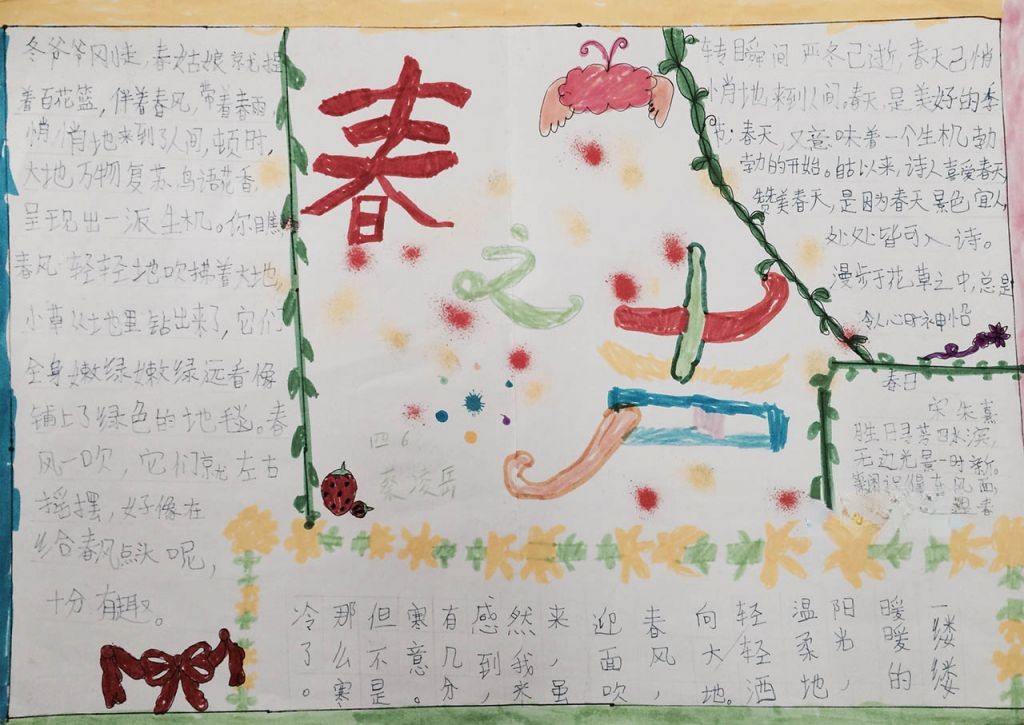 冬爷爷刚走，春姑娘就提
着百花篮，伴着春风，带着春雨
悄悄地来到了人间，顿时，
大地万物复苏、鸟语花香，
呈现出一派生机。你瞧
春风轻轻地吹拂着大地，
小草从土地里钻出来了，它们
全身嫩绿嫩绿远看像
铺上了绿色的地毯。春
风一吹，它们就左右
摇摆，好像在
给春风点头呢，
十分有趣。
春
之
声
四6
蔡凌岳
转瞬间严冬已逝，春天已悄
悄地来到人间。春天，是美好的季
节；春天，又意味着一个生机勃
勃的开始。自古以来，诗人喜爱春天
赞美春天，是因为春天景色宜人，
处处皆可入诗。
漫步于花草之中，总是
令人心旷神怡
春日
宋 朱熹
胜日寻芳泗水滨，
无边光景一时新。
识得东风面，
春
一缕缕
暖暖的
阳光，
温柔地
轻轻洒
向大地。
春风，
迎面吹
来，虽
然我
感到，
有几分
寒意。
但不是
那么寒
冷了。